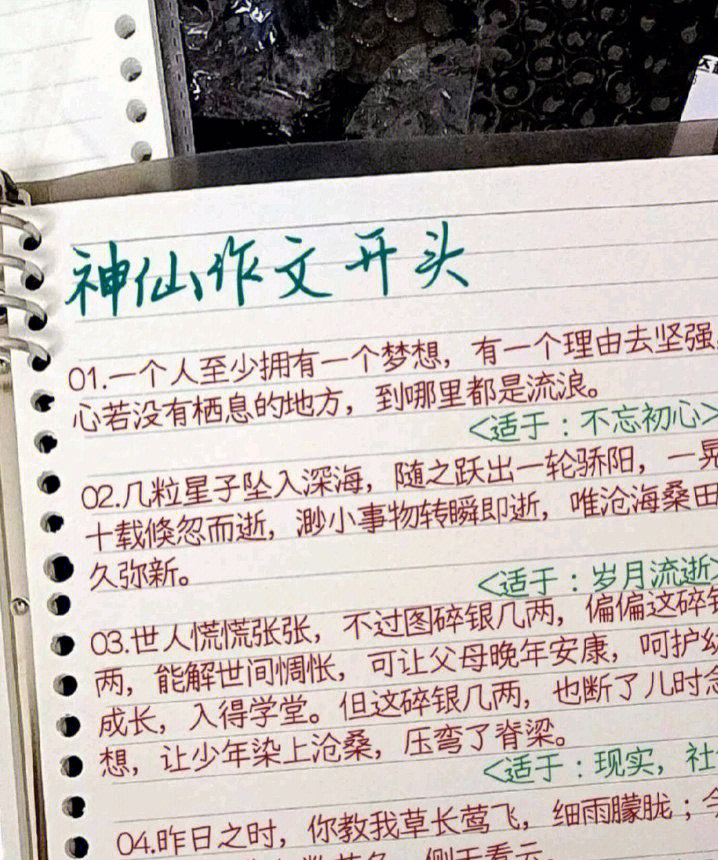 神仙作文开头
01.一个人至少拥有一个梦想，有一个理由去坚强。
心若没有栖息的地方，到哪里都是流浪。
<适于：不忘初心>
02.几粒星子坠入深海，随之跃出一轮骄阳，一晃
十载倏忽而逝，渺小事物转瞬即逝，唯沧海桑田
久弥新。
<适于：岁月流逝>
03.世人慌慌张张，不过图碎银几两，偏偏这碎银
两，能解世间惆怅，可让父母晚年安康，呵护幼
成长，入得学堂。但这碎银几两，也断了儿时念
想，让少年染上沧桑，压弯了脊梁。
<适于：现实，社
04.昨日之时，你教我草长莺飞，细雨朦胧；今
侧于看云。